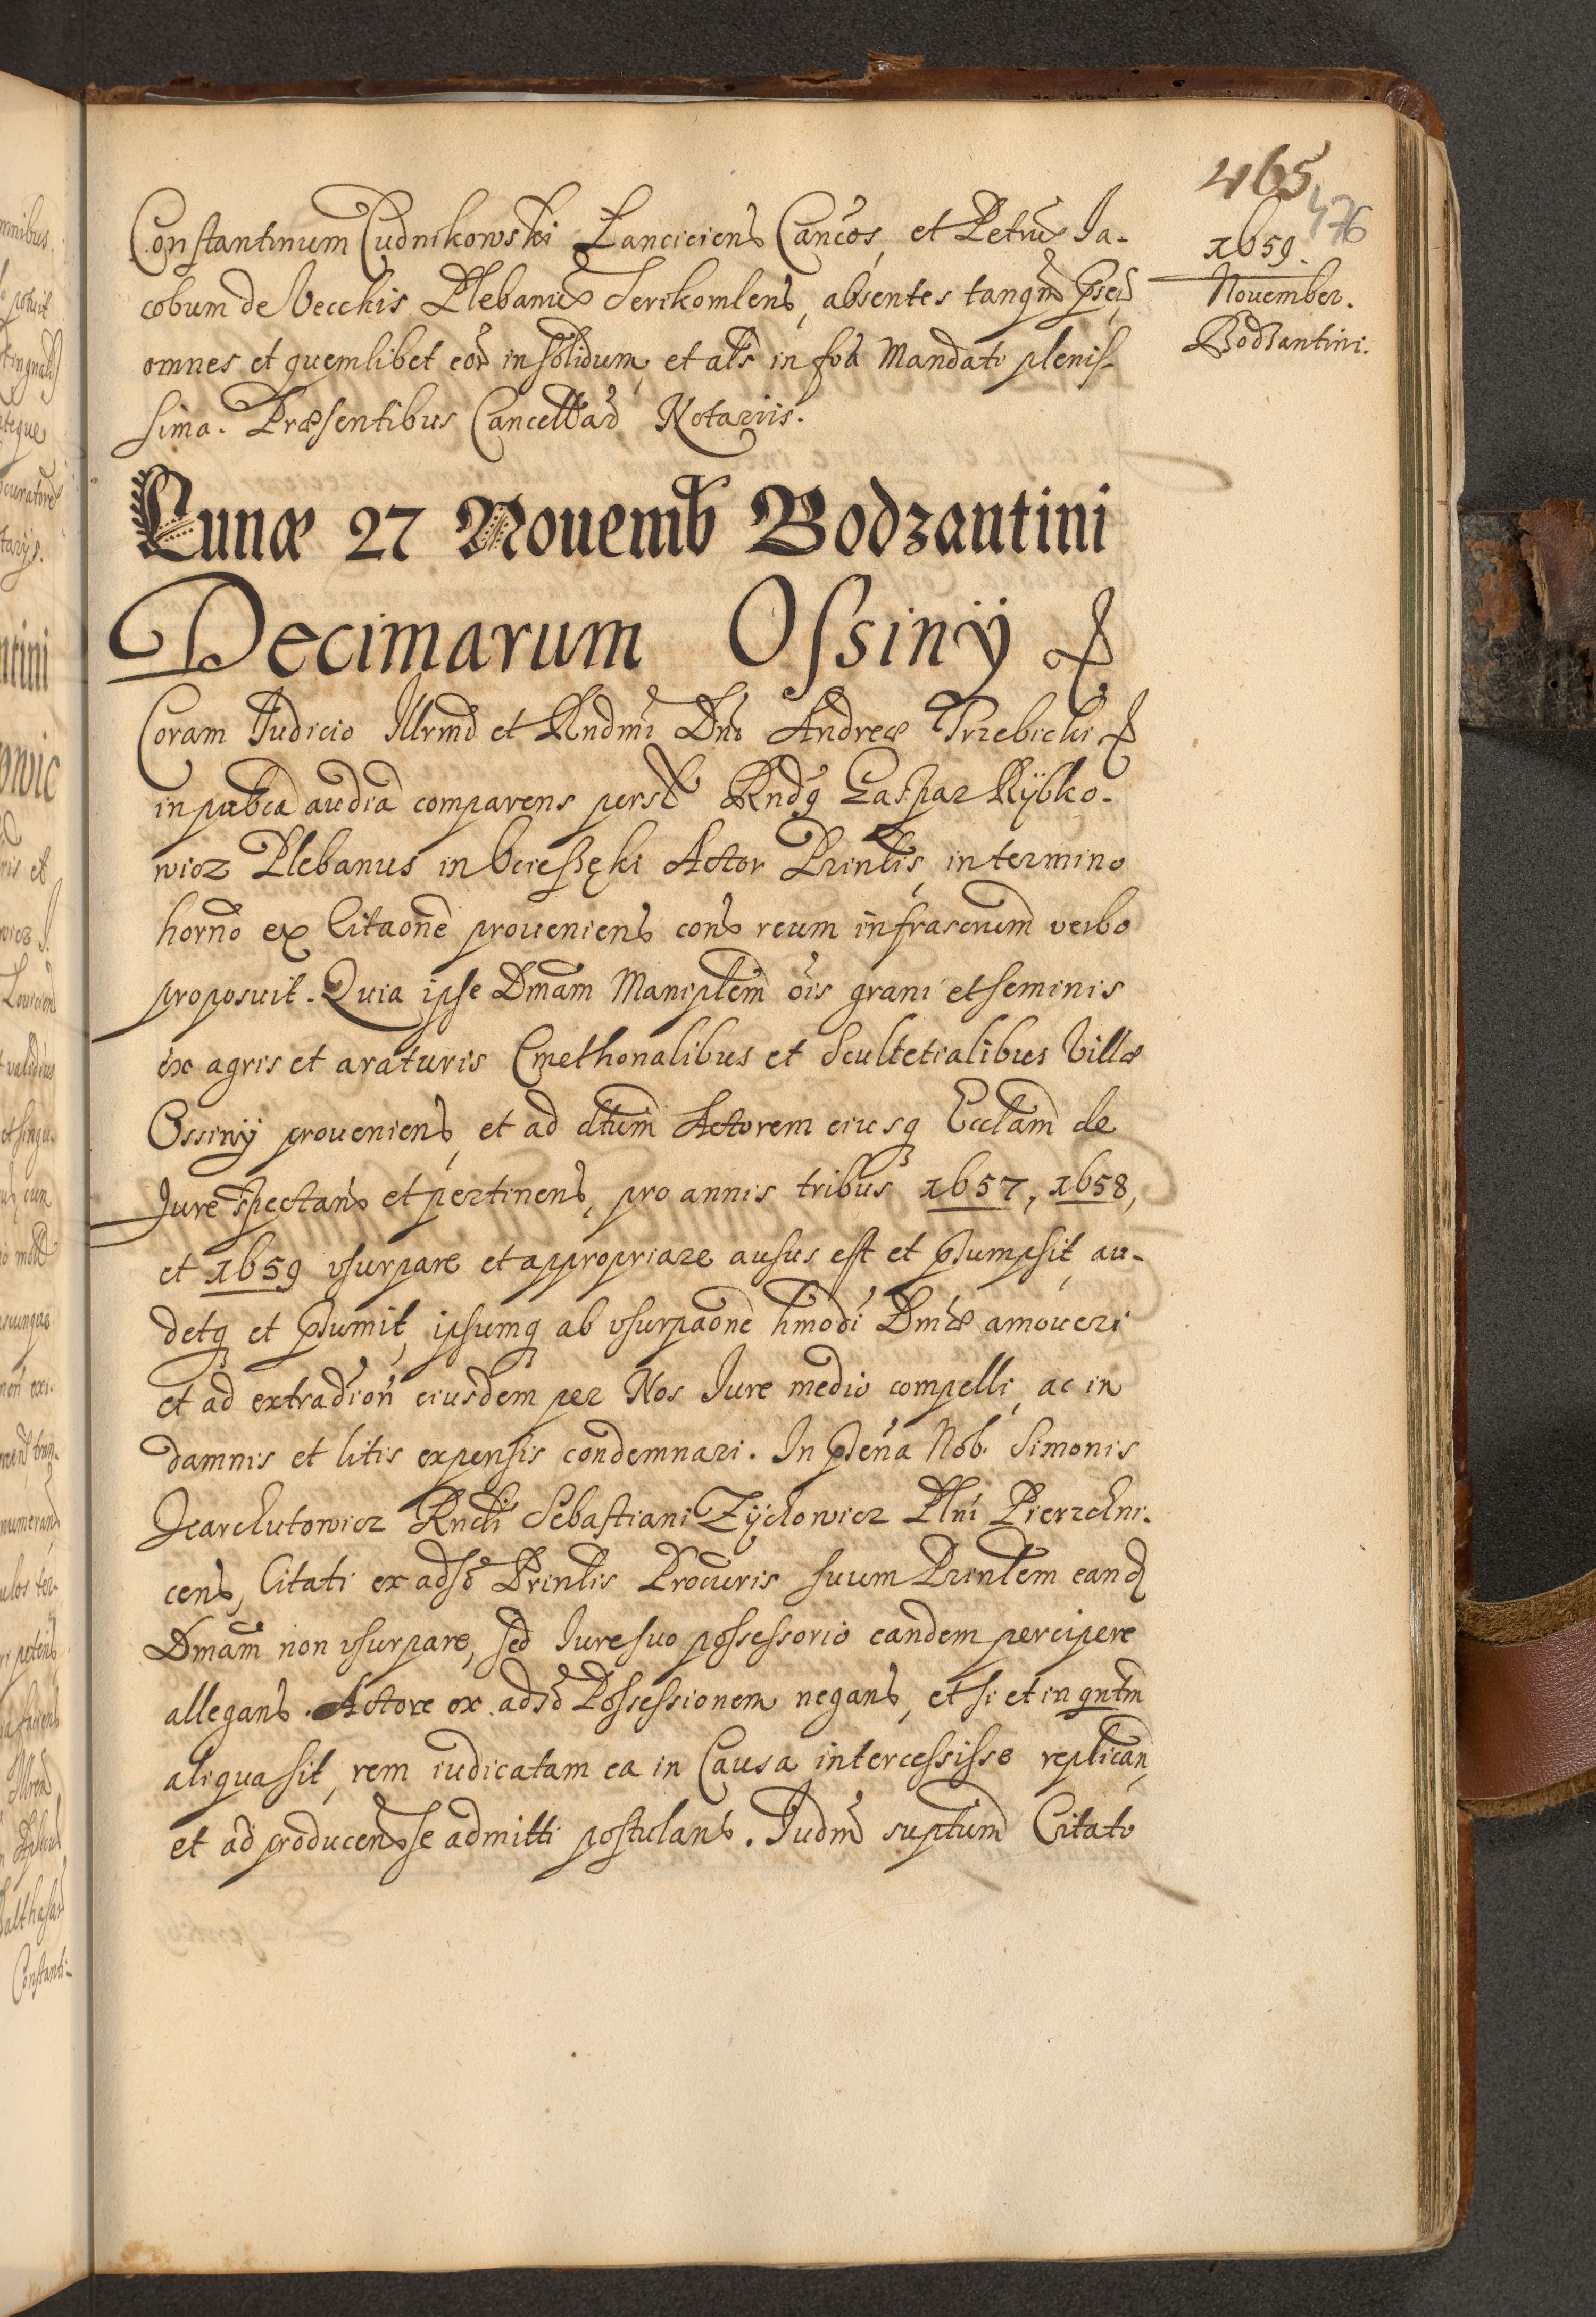 465
476
1659.
November.
Bodzantini.
Constantinum Cudnikowski Lanciciens Cancos, et Petrũ Ja-
cobum de Vecchis Plebanũ Serikomlens, absentes tanqm̃ Pñtes
omnes et quemlibet eor̃ in solidum, et als in foã Mandati plenis-
sima. Præsentibus Cancellar̃ Notariis.
Lunæ 27 Nouemb Bodzantini
Decimarum Ossinÿ
Coram Judicio Illrmi et Rndmi Dni Andreæ Trzebicki
in pubca audia comparens pers̃ Rndq Caspar Rÿbko-
wicz Plebanus in Actor Prinlis, in termino
horno ex Citaone proueniens cons reum infrascrum verbo
proposuit. Quia ipse Dmam Maniplem ois grani et seminis
ex agris et araturis Cmethonalibus et Scultetialibus Villæ
Ossinÿ proueniens, et ad dtum Actorem eiusq Ecclam de
Jure spectans et pertinens, pro annis tribus 1657, 1658,
et 1659 vsurpare et appropriare ausus est et psumpsit, au-
detq et psumit, ipsumq ab vsurpaone hmodi Dmæ amoueri
et ad extradion eiusdem per Nos Jure medio compelli, ac in
damnis et litis expensis condemnari. In psena Nob. Simonis
Rndi Sebastiani Zÿchowicz Plni Pierzchni-
cens, Citati ex adso Prinlis Procuris suum Prinlem eand
Dmam non vsurpare, sed Jure suo possessorio eandem percipere
allegans. Actore ex adso Possessionem negans, et si et in qntm
aliqua sit, rem iudicatam ea in Causa intercessisse replican,
et ad producen se admitti postulans. Judm suptum Citato